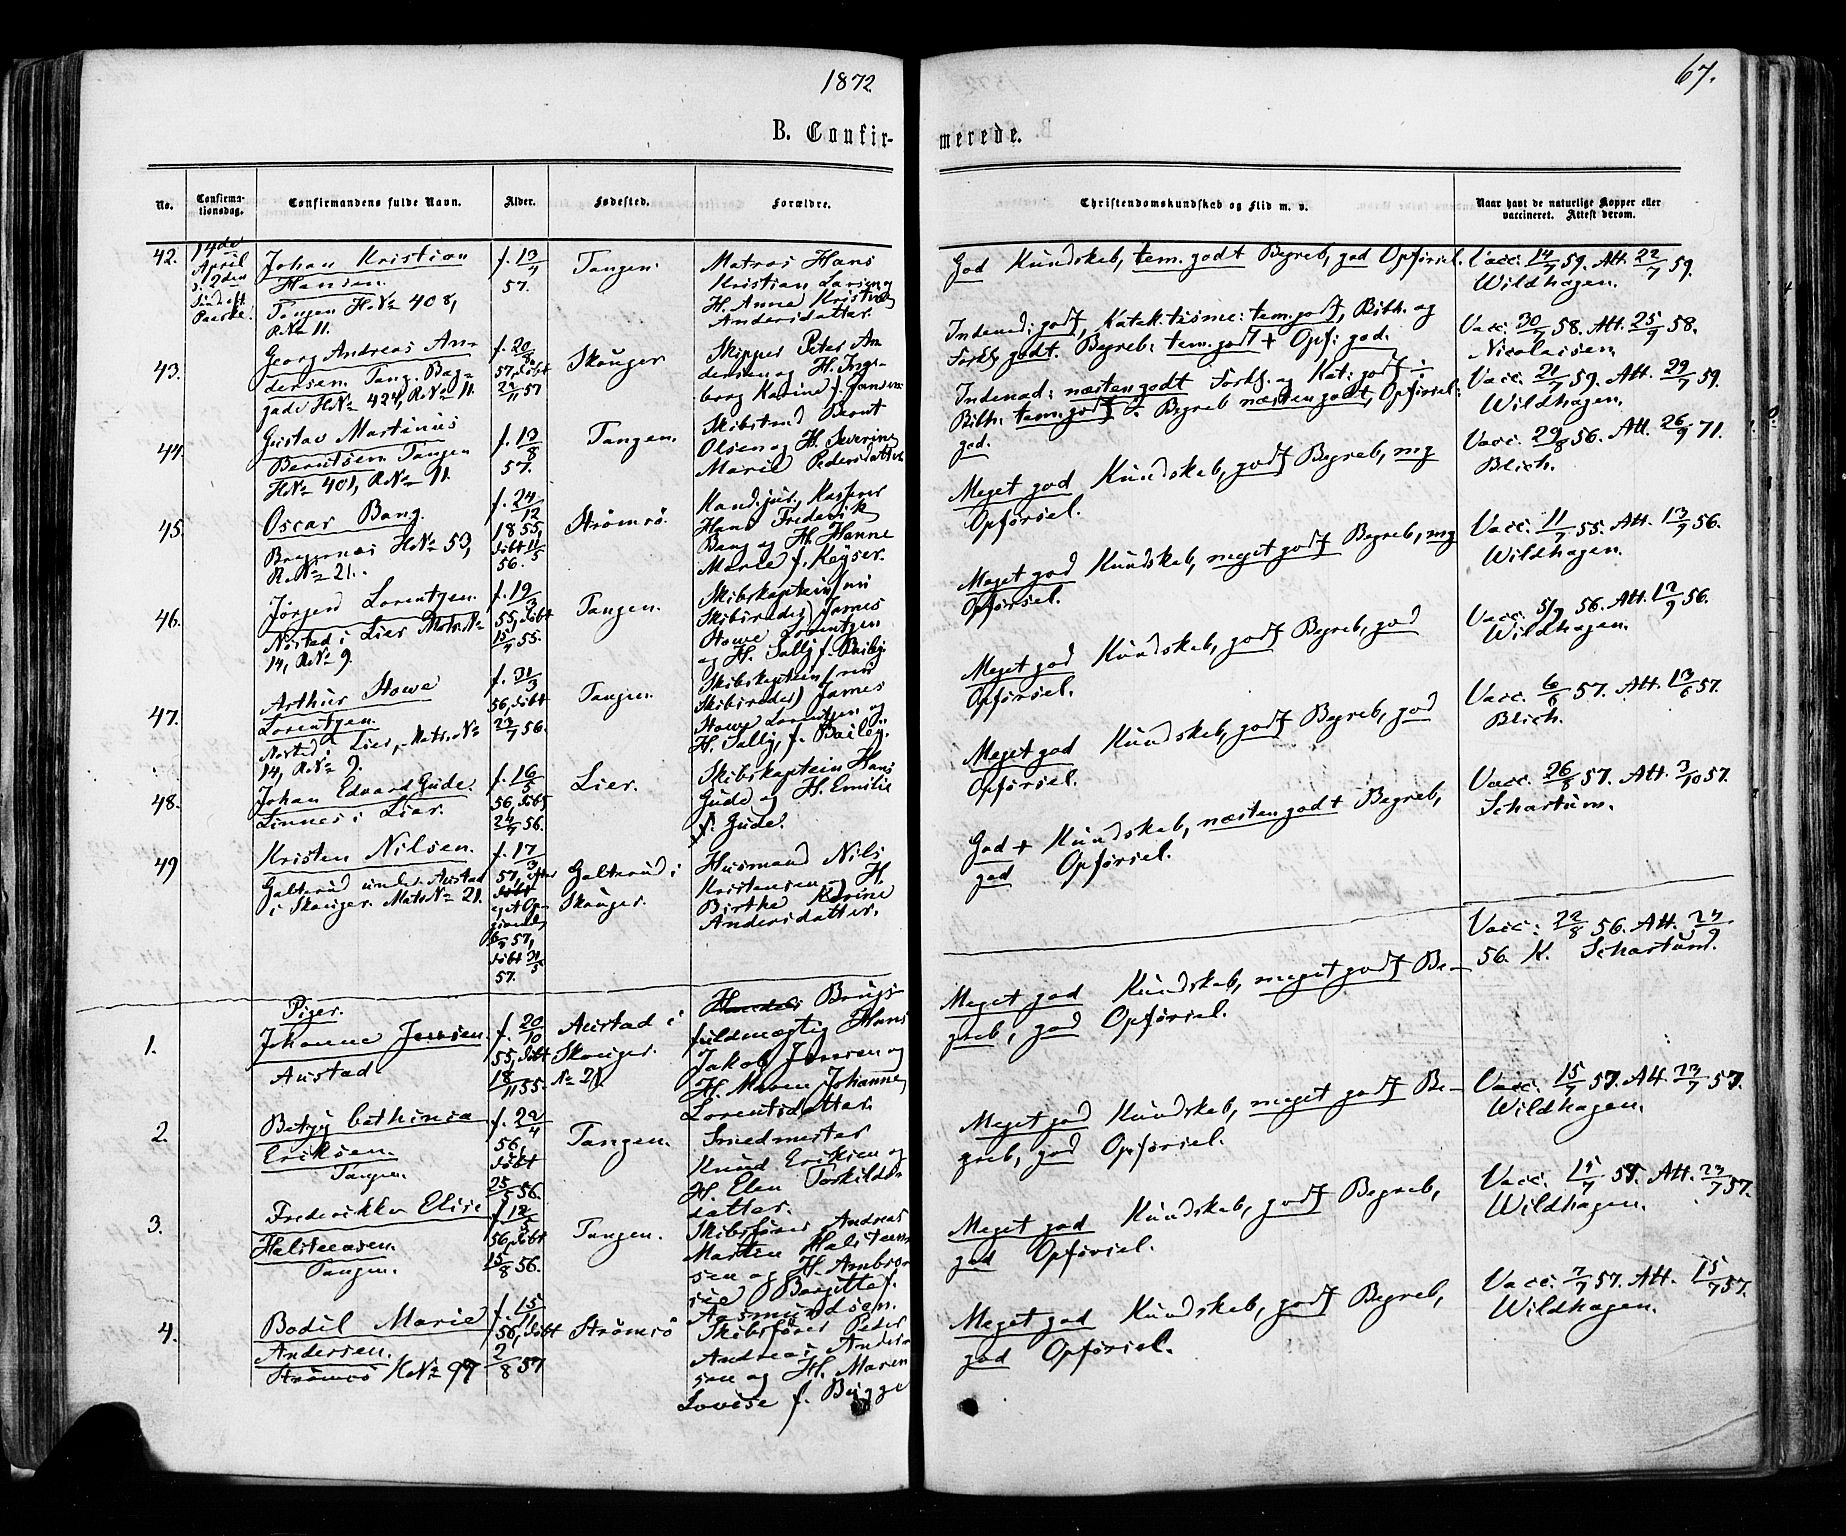 1872
67.
B. Confir-
merede.
No.
Confirma-
tionsdag.
Confirmandens fulde Navn.
Alder.
Fødested.
Forældre.
Christendomskundskab og Flid m. v.
Naar havt de naturlige Kopper eller
vaccineret. Attest derom.
42.
14de
April
2den
Påske.
Johan Kristian
Hansen.
Tangen H.No 408,
R.No 11.
f. 13/7
57.
Tangen.
Matros Hans
Kristian Larsen og
H. Anne Kristine
Andersdatter.
God Kundskab, tem. godt Begreb, god Opførsel.
Vacc. 14/7 59. Att. 22/7 59.
Wildhagen.
43.
Georg Andreas An-
dersen. Tang. Bag-
gade H.No 424, R.No 11.
f. 20/8
57, døbt
22/11 57
Skouger
Skipper Peter An
dersen og H. Inge-
borg Karine f. Jansen
Indenad: godt, Katektisme: tem. godt, Bibh. og
Forkl. godt. Begreb: tem. godt + Opf: god.
Vacc. 30/7 58. Att. 25/9 58.
Nicolaisen.
44.
Gustav Martinus
Berntsen Tangen
H.No 401, R.No 11.
f. 13/8
57.
Tangen.
Skibstmd Bernt
Olsen og H. Severine
Marie Pedersdatter
Indenad: næsten godt Forkl. og Kat: godt ÷
Bibh. tem. godt ÷ Begreb næsten godt, Opførsel:
god.
Vacc. 21/7 59. Att. 29/7 59.
Wildhagen.
45.
Oscar Bang.
Bragernes H.No 53,
R.No 21.
f. 24/12
1855,
døbt 11/5
56.
Strømsø.
Kand. jur., Kasserer
Hans Frederik
Bang og H. Hanne
Marie f. Keyser.
Meget god Kundskab, godt Begreb, mg
Opførsel.
Vacc. 29/8 56. Att. 26/9 71.
Blich.
46.
Jørgen Lorentzen.
Nøsted i Lier Matr.No
14, R.No 9.
f. 19/3
55, døbt
15/7 55.
Tangen.
Skibskaptein (nu
Skibsreder) James
Howe Lorentzen
og H. Sally f. Bailey.
Meget god Kundskab, meget godt Begreb, mg
Opførsel.
Vacc. 11/7 55. Att. 13/7 56.
Wildhagen.
47.
Arthur Howe
Lorentzen.
Nøsted i Lier, Matr.No
14, R.No 9.
f. 31/3
56, døbt
23/7 56.
Tangen.
Skibskaptein (nu
Skibsreder) James
Howe Lorentzen og
H. Sally, f. Bailey.
Meget god Kundskab, godt Begreb, god
Opførsel.
Vacc. 5/9 56. Att. 12/9 56.
Wildhagen.
48.
Johan Edvard Gude.
Linnes i Lier.
f. 16/5
56, døbt
24/7 56.
Lier.
Skibskaptein Hans
Gude og H. Emilie
f. Gude.
Meget god Kundskab, godt Begreb, god
Opførsel.
Vacc. 6/6 57. Att. 13/6 57.
Blich.
49
Kristen Nilsen.
Galterud under Austad
i Skouger. Matr.No 21.
f. 17/3
57, efter
døbt
eget Op-
givende
57,
døbt 31/5
57.
Galterud i
Skouger.
Husmand Nils
Kristensen og H.
Birthe Karine
Andersdatter.
God + Kundskab, næsten godt Begreb,
god Opførsel.
Vacc. 26/8 57. Att. 3/10 57.
Schartum.
Piger.
1.
Johanne Jensen.
Austad.
f. 20/10
55, døbt
18/11 55.
Austad i
Skouger.
No 21.
Handels Brugs-
fuldmægtig Hans
Jakob Jensen og
H. Maren Johanne
Lorentsdatter.
Meget god Kundskab, meget godt Be-
greb, god Opførsel.
Vacc: 22/8 56. Att. 24/9
56. K. Schartum.
2.
Betzy Cathinca
Eriksen.
Tangen.
f. 22/4
56,
døbt
25/5 56.
Tangen.
Smedmester
Knud Eriksen og
H. Elen Torkilds-
datter.
Meget god Kundskab, meget godt Be-
greb, god Opførsel.
Vacc. 15/7 57. Att. 23/7 57.
Wildhagen.
3.
Frederikke Elise
Halstensen.
Tangen.
f. 12/5
56, døbt
15/8 56.
Tangen.
Skibsfører Andreas
Martin Halsten-
sen og H. Ambro-
sia Bergitte f.
Aasmundsen.
Meget god Kundskab, godt Begreb,
god Opførsel.
Vacc. 15/7 57. Att. 23/7 57.
Wildhagen.
4.
Bodil Marie
Andersen.
Strømsø H.No 97
f. 15/11
56, døbt
2/8 57
Strømsø
Skibsfører Peder
Andreas Ander-
sen og H. Maren
Lovise f. Bugge
Meget god Kundskab, godt Begreb,
god Opførsel.
Vacc. 7/7 57. Att. 15/7 57.
Wildhagen.